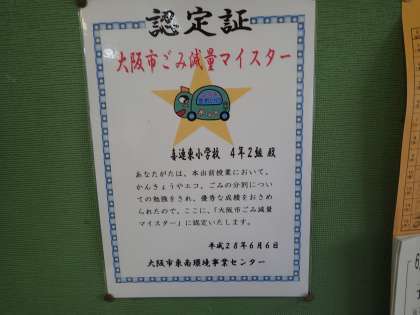 認定証
大阪市ごみ減量マイスター
喜連東小学校 4年2組 殿
あなたがたは、本出前授業において、
かんきょうやエコ、ごみの分別につい
ての勉強をされ、優秀な成績をおさめ
られたので、ここに、「大阪市ごみ減量
マイスター」に認定いたします。
平成28年6月6日
大阪市東南環境事業センター